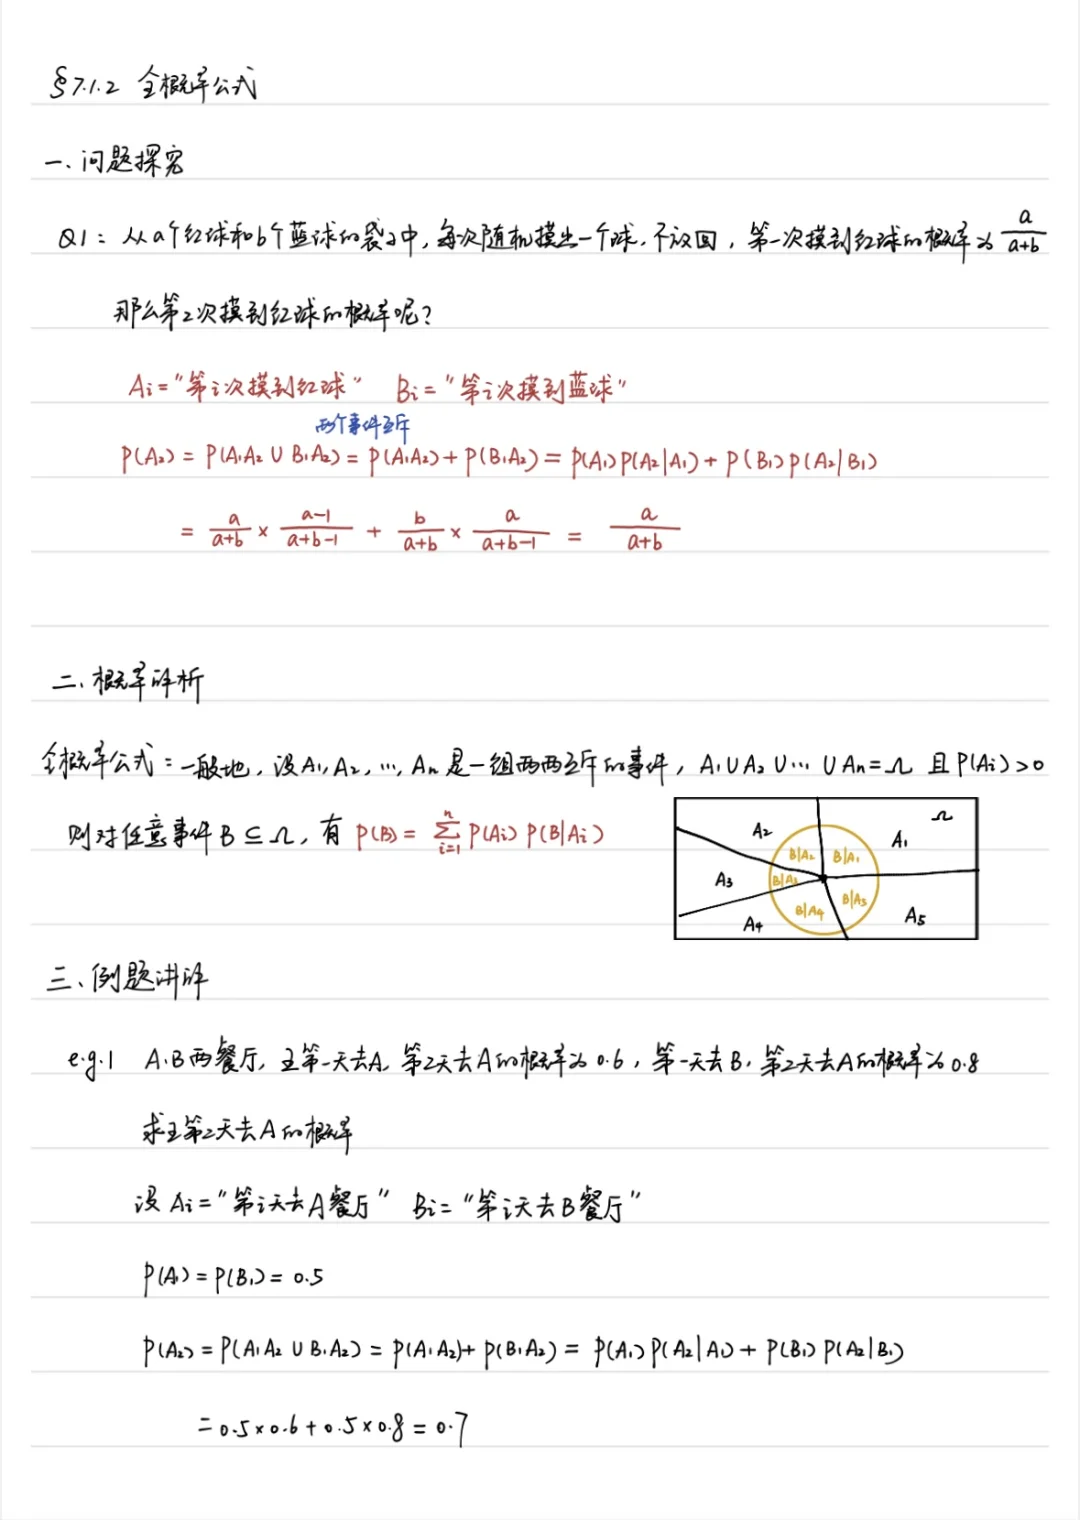 §7.1.2 全概率公式
一、问题探究
Q1: 从a个红球和b个蓝球的袋子中,每次随机摸出一个球,不放回,第一次摸到红球的概率为 a/(a+b)
那么第2次摸到红球的概率呢?
Ai="第i次摸到红球" Bi="第i次摸到蓝球"
两个事件互斥
P(A₂) = P(A₁A₂ ∪ B₁A₂) = P(A₁A₂) + P(B₁A₂) = P(A₁)P(A₂|A₁) + P(B₁)P(A₂|B₁)
= a/(a+b) × (a-1)/(a+b-1) + b/(a+b) × a/(a+b-1) = a/(a+b)
二、概率评析
全概率公式:一般地,设A₁,A₂,…,Aₙ是一组两两互斥的事件,A₁∪A₂∪…∪Aₙ=Ω 且P(Ai)>0
则对任意事件B⊆Ω,有 P(B) = ∑ⁿᵢ₌₁ P(Ai) P(B|Ai)
Ω
A₂ A₁
B|A₂ B|A₁
A₃ B|A₃
B|A₄ B|A₅
A₄ A₅
三、例题讲评
e.g.1 A.B两餐厅,王第一天去A,第2天去A的概率为0.6,第一天去B,第2天去A的概率为0.8
求王第2天去A的概率
设 Ai="第i天去A餐厅" Bi="第i天去B餐厅"
P(A₁)=P(B₁)=0.5
P(A₂) = P(A₁A₂ ∪ B₁A₂) = P(A₁A₂)+ P(B₁A₂) = P(A₁)P(A₂|A₁) + P(B₁)P(A₂|B₁)
=0.5×0.6+0.5×0.8=0.7